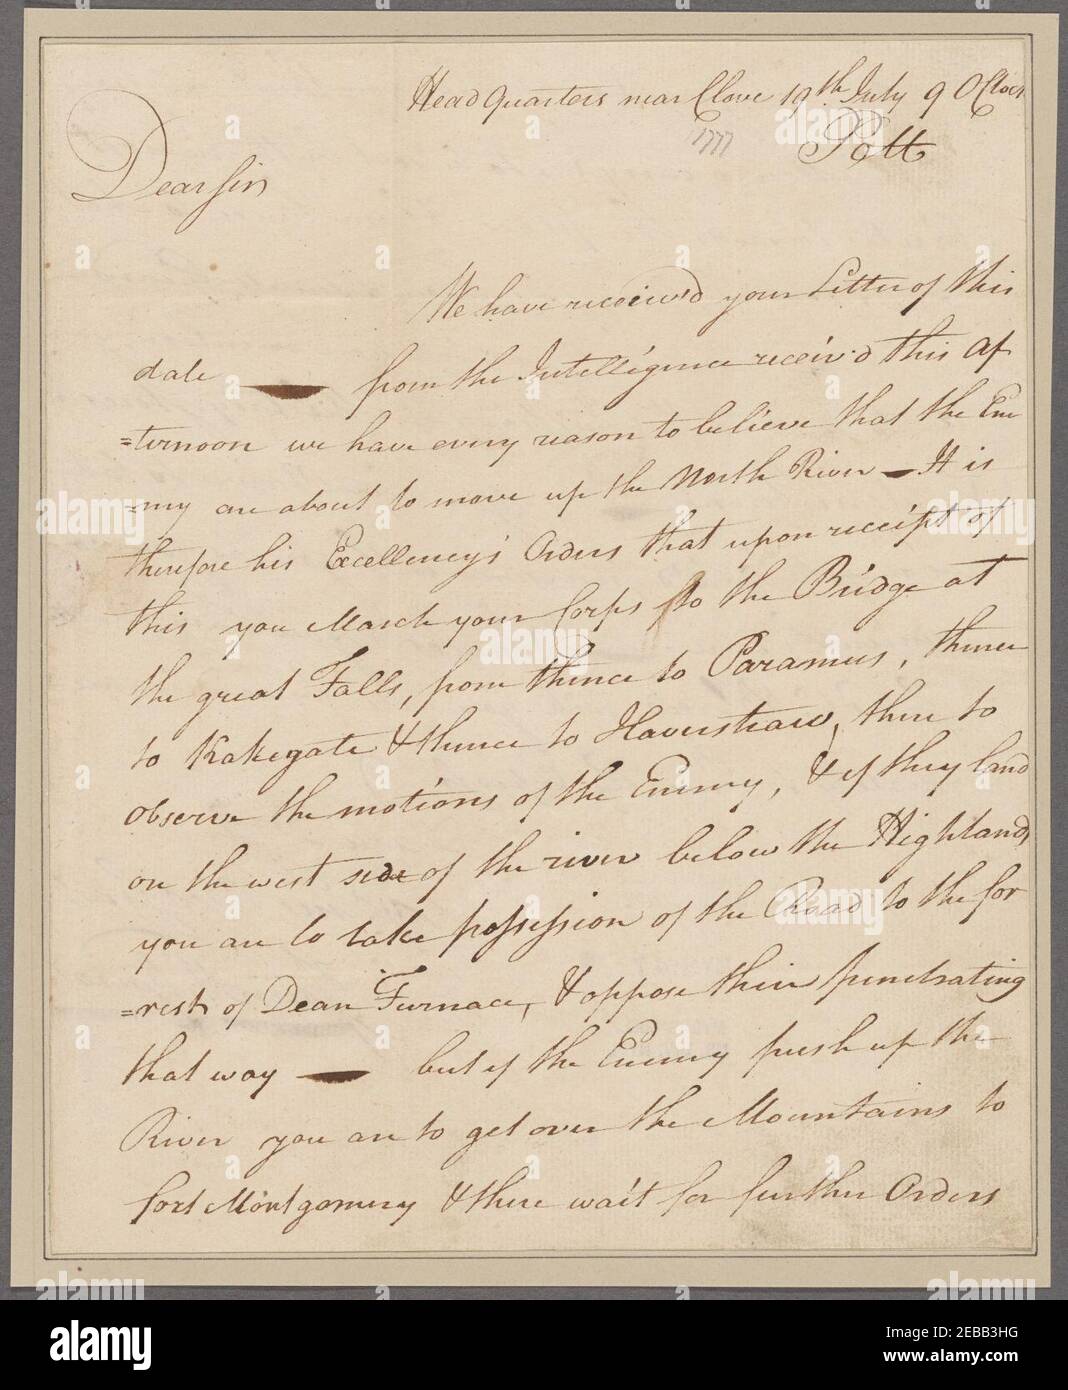 Head Quarters near Clove 19th July 9 OClock
1777
Dear Sir
We have receiv'd your Letter of this
date — from the Intelligence receiv'd this Af
=ternoon we have every reason to believe that the Ene
=my are about to move up the North River — It is
therefore his Excellency's Orders that upon receipt of
this you March your Corps to the Bridge at
the great Falls, from thence to Paramus, thence
to Kakegate & thence to Haverstraw, there to
observe the motions of the Enemy, & if they land
on the west side of the river below the Highlands
you are to take possession of the Road to the for
=rest of Dean Furnace, & oppose their penetrating
that way — but if the Enemy push up the
River you are to get over the Mountains to
fort Montgomery & there wait for further Orders
alamy
Image ID: 2EBB3HG
www.alamy.com